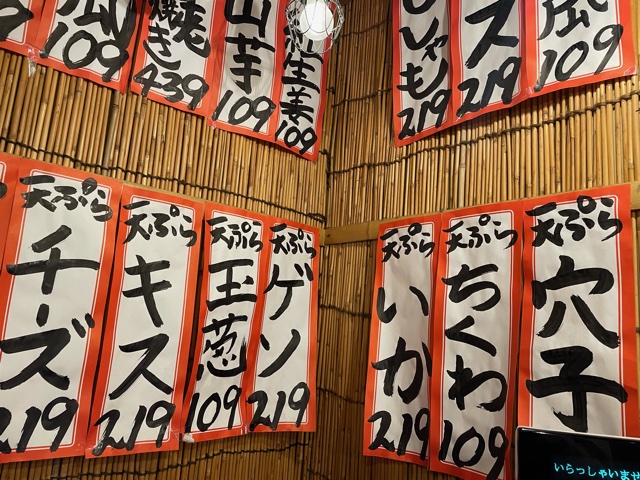 109
焼き
439
山芋
109
生姜
109
しゃも
219
ス
219
109
天ぷら
チーズ
219
天ぷら
キス
219
天ぷら
玉葱
109
天ぷら
ゲソ
219
天ぷら
いか
219
天ぷら
ちくわ
109
天ぷら
穴子
いらっしゃいませ